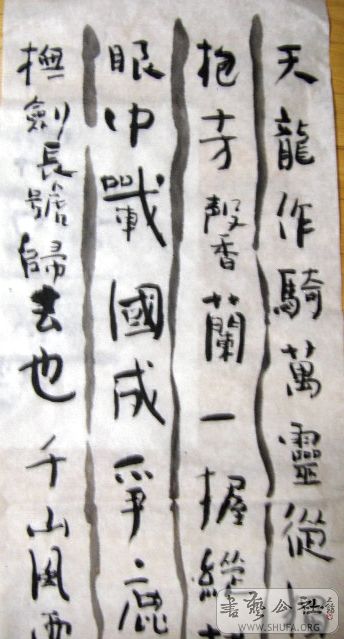 天龍作騎萬靈從
抱芳馨香蘭一握縱
眼中戰國成爭鹿
撫劍長號歸去也千山風雨
書藝公社
WWW.SHUFA.ORG